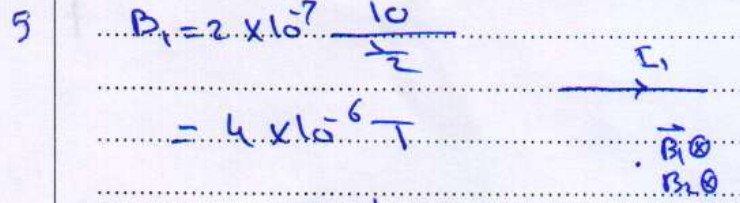 5
B₁ = 2 × 10⁻⁷ 10 / ½
= 4 × 10⁻⁶ T
I₁
B⃗₁ ⊗
B₂ ⊗